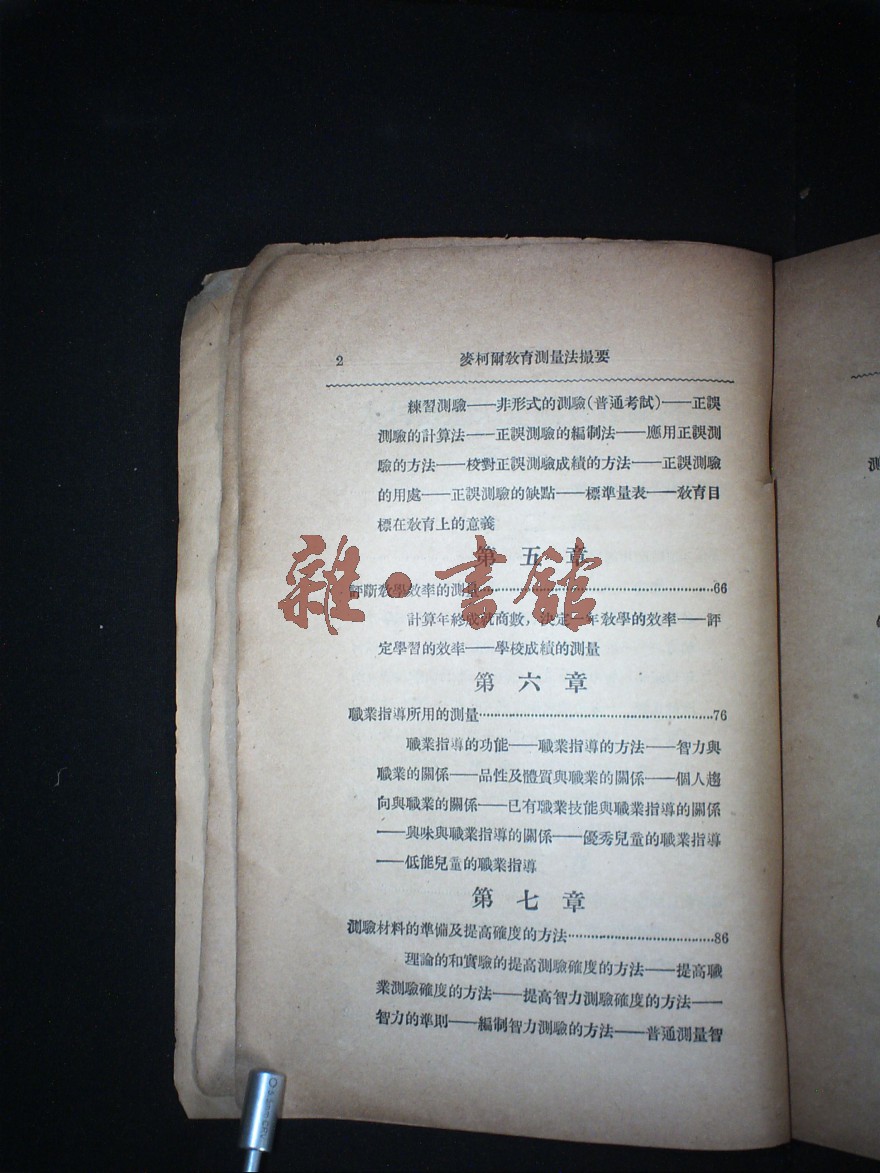 2 麥柯爾敎育測量法撮要
練習測驗——非形式的測驗(普通考試)——正誤
測驗的計算法——正誤測驗的編制法——應用正誤測
驗的方法——校對正誤測驗成績的方法——正誤測驗
的用處——正誤測驗的缺點——標準量表——敎育目
標在敎育上的意義
第五章
評斷敎學效率的測量……66
計算年終成就商數，決定一年敎學的效率——評
定學習的效率——學校成績的測量
第六章
職業指導所用的測量……76
職業指導的功能——職業指導的方法——智力與
職業的關係——品性及體質與職業的關係——個人趨
向與職業的關係——已有職業技能與職業指導的關係
——興味與職業指導的關係——優秀兒童的職業指導
——低能兒童的職業指導
第七章
測驗材料的準備及提高確度的方法……86
理論的和實驗的提高測驗確度的方法——提高職
業測驗確度的方法——提高智力測驗確度的方法——
智力的準則——編制智力測驗的方法——普通測量智
雜·書館